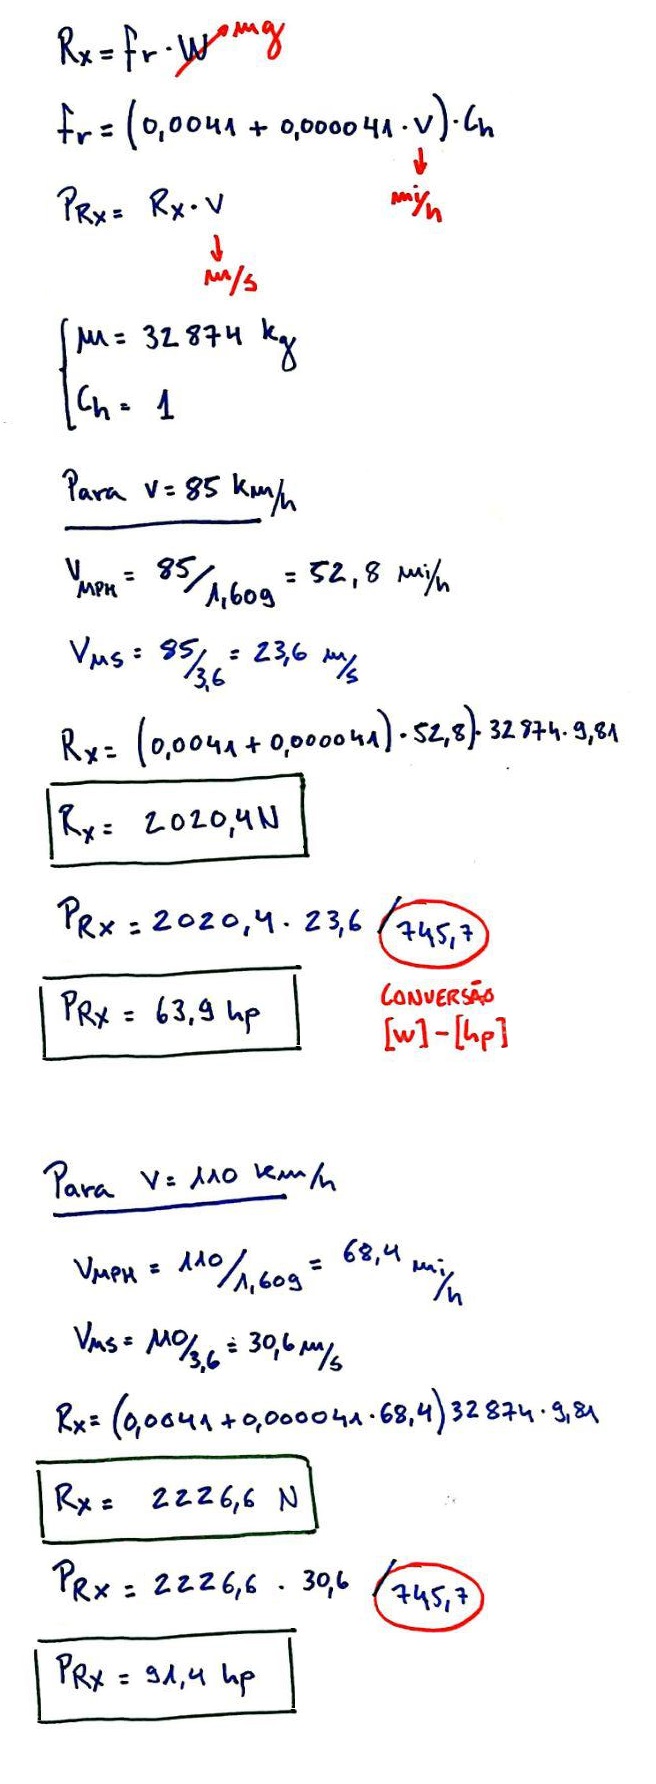 Rx = fr · W mg
fr = (0,0041 + 0,000041 · V) · Ch
mi/h
PRx = Rx · V
m/s
m = 32874 kg
Ch = 1
Para V = 85 km/h
VMPH = 85/1,609 = 52,8 mi/h
VMS = 85/3,6 = 23,6 m/s
Rx = (0,0041 + 0,000041) · 52,8) · 32874 · 9,81
Rx = 2020,4 N
PRx = 2020,4 · 23,6 / 745,7
CONVERSÃO
PRx = 63,9 hp
[W] - [hp]
Para V = 110 km/h
VMPH = 110/1,609 = 68,4 mi/h
VMS = 110/3,6 = 30,6 m/s
Rx = (0,0041 + 0,000041 · 68,4) 32874 · 9,81
Rx = 2226,6 N
PRx = 2226,6 · 30,6 / 745,7
PRx = 91,4 hp